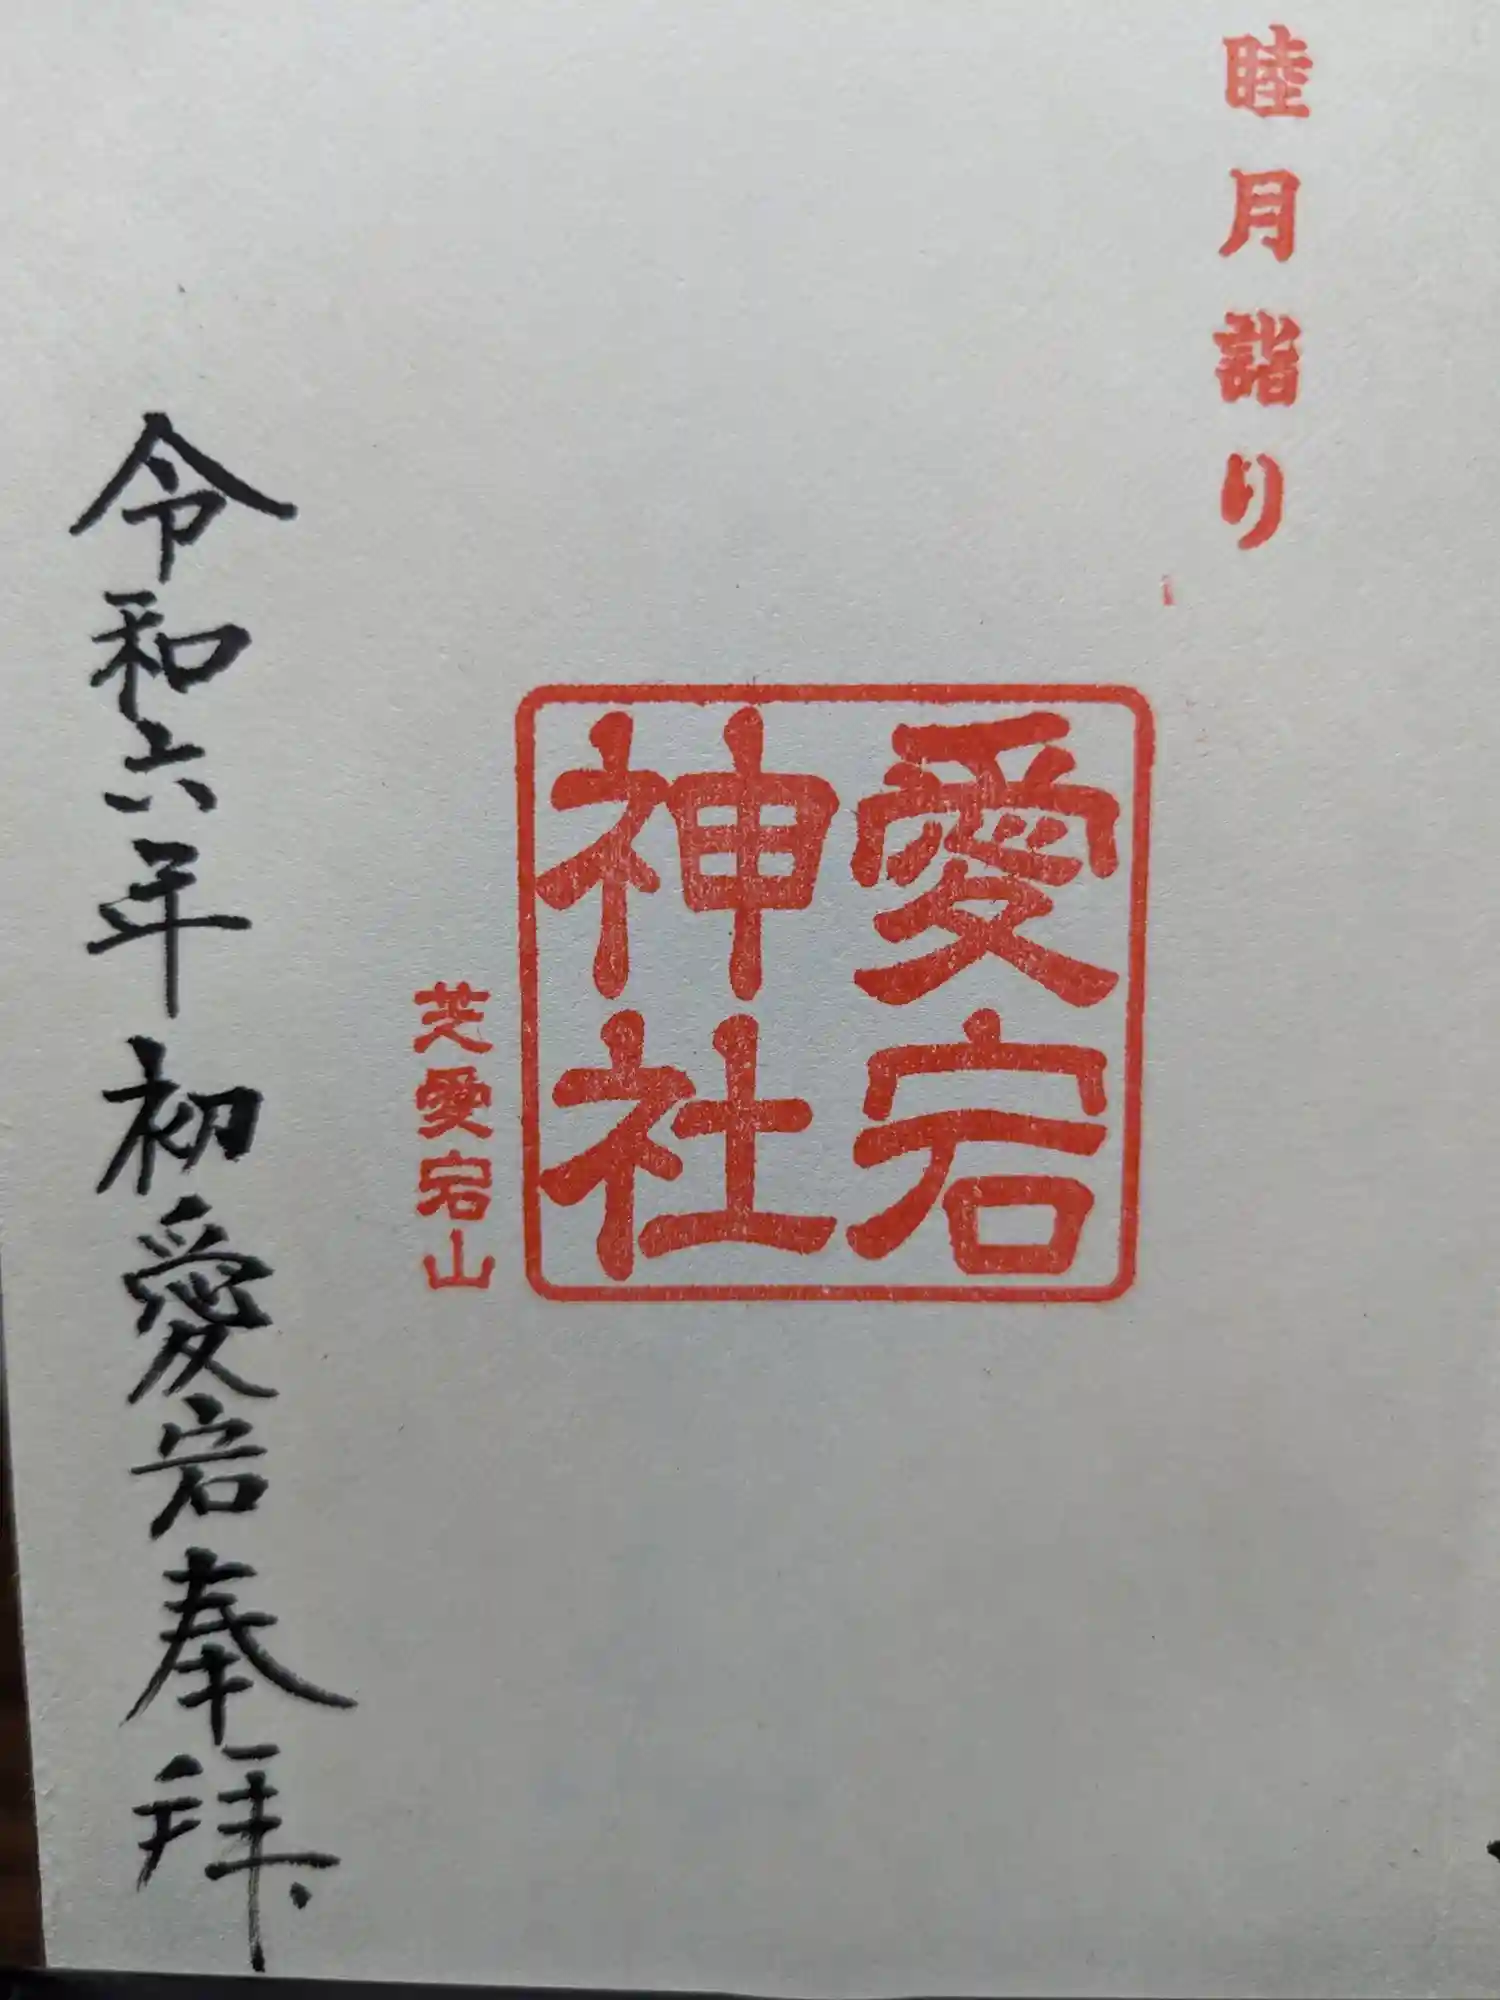 睦月詣り
愛宕
神社
芝愛宕山
令和六年初愛宕奉拝